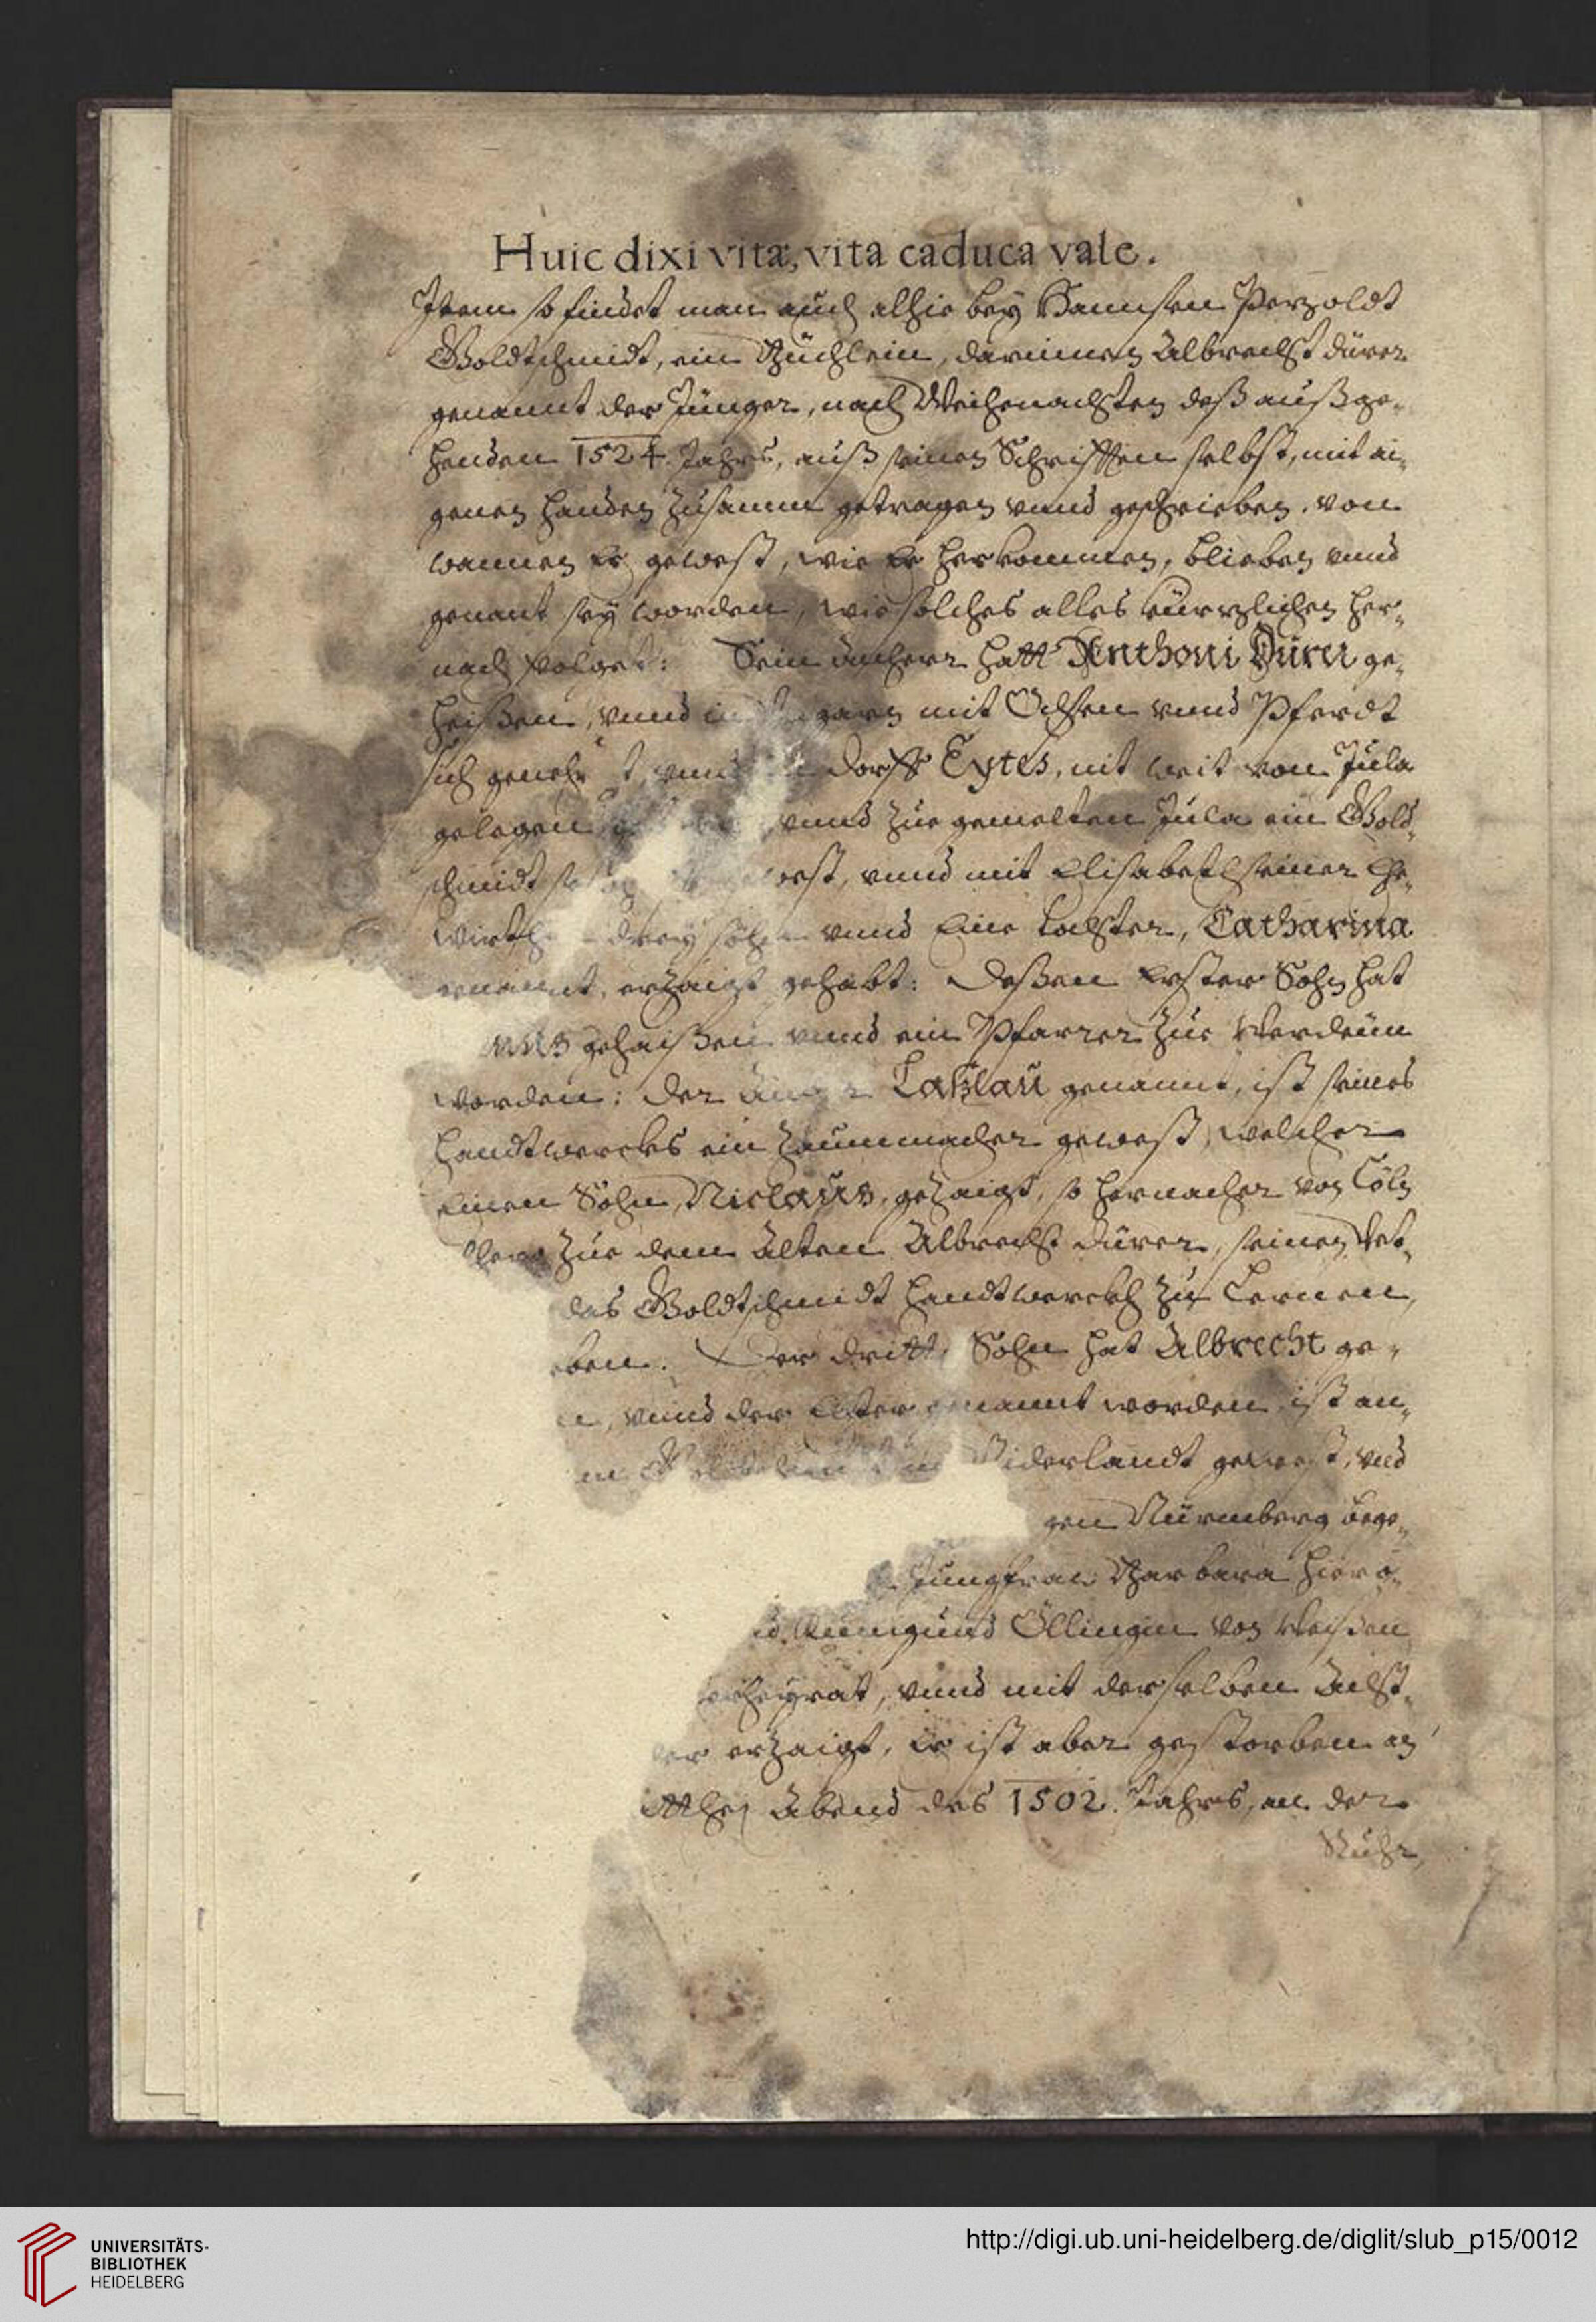 Huic dixi vitæ, vita caduca vale.
Item so findet man auch alhie bey Hannsen Pezoldt
Goldtschmidt, ein Büchlein, darinnen Albrecht Dürer
genannt der Jünger, nach Weihenachten deß außge-
henden 1524. Jahrs, auß seinen Schrifften selbst, mit ai-
genen handen zusamm getragen vnnd geschrieben, von
wannen Er gewest, wie Er herkommen, blieben vnnd
genant sey worden, wie solches alles kürzlichen her-
nach volget: Sein Anherr hatt Anthoni Dürer ge-
heißen, vnnd in garn mit Ochsen vnnd Pferdt
sich genehr t, vnnd dorff Eytes, nit weit von Jula
gelegen vnnd zue gemelten Jula ein Gold-
schmidt west, vnnd mit Elisabeth seiner Ehe-
wirth drey söhn vnnd Eine tochter, Catharina
genannt, erzaigt gehabt: Deßen Erster Sohn hat
gehaißen vnnd ein Pfarrer zue Werdein
worden: Der Laßlau genannt, ist seines
handtwercks ein Zaummacher gewest, welcher
Einen Sohn, Niclaus, gezaigt, so hernacher von Cöln
zue dem Alten Albrecht Dürer, seinen Vet-
das Goldtschmidt handtwerckh zu Lernen,
eben. Der dritt Sohn hat Albrecht ge-
vnnd der Elter genannt worden, ist an-
iderlandt gewest, vnd
gen Nürmberg bege-
Jungfrau Barbara Hiero-
Kunigund Öllingin von Weißen
heyrat, vnnd mit derselben Acht-
erzaigt, Er ist aber gestorben an
Abend des 1502. Jahrs, an der
Ruhr,
UNIVERSITÄTS-
BIBLIOTHEK
HEIDELBERG
http://digi.ub.uni-heidelberg.de/diglit/slub_p15/0012